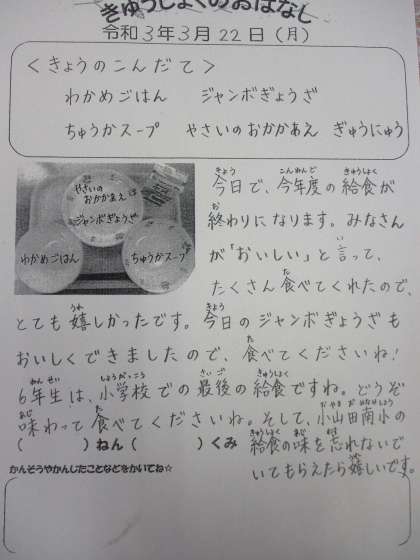 きゅうしょくのおはなし
令和3年3月22日(月)
<きょうのこんだて>
わかめごはん ジャンボぎょうざ
ちゅうかスープ やさいのおかかあえ ぎゅうにゅう
やさいの
おかかあえ
ジャンボぎょうざ
わかめごはん
ちゅうかスープ
今日で、今年度の給食が
終わりになります。みなさん
が「おいしい」と言って、
たくさん食べてくれたので、
とても嬉しかったです。今日のジャンボぎょうざも
おいしくできましたので、食べてくださいね!
6年生は、小学校での最後の給食ですね。どうぞ
味わって食べてくださいね。そして、小山田南小の
給食の味を忘れないで
いてもらえたら嬉しいです。
( )ねん ( )くみ
かんそうやかんじたことなどをかいてね☆